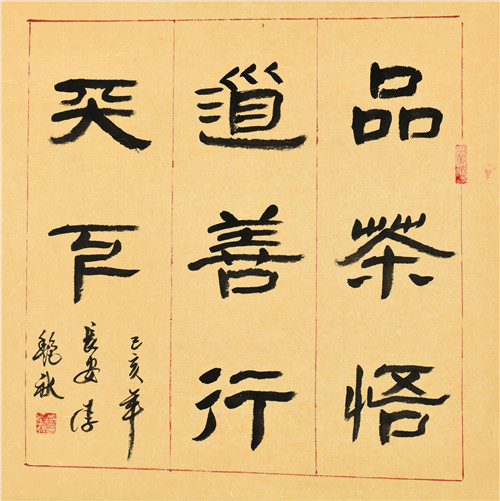 品茶悟
道善行
天下
己亥年
长安